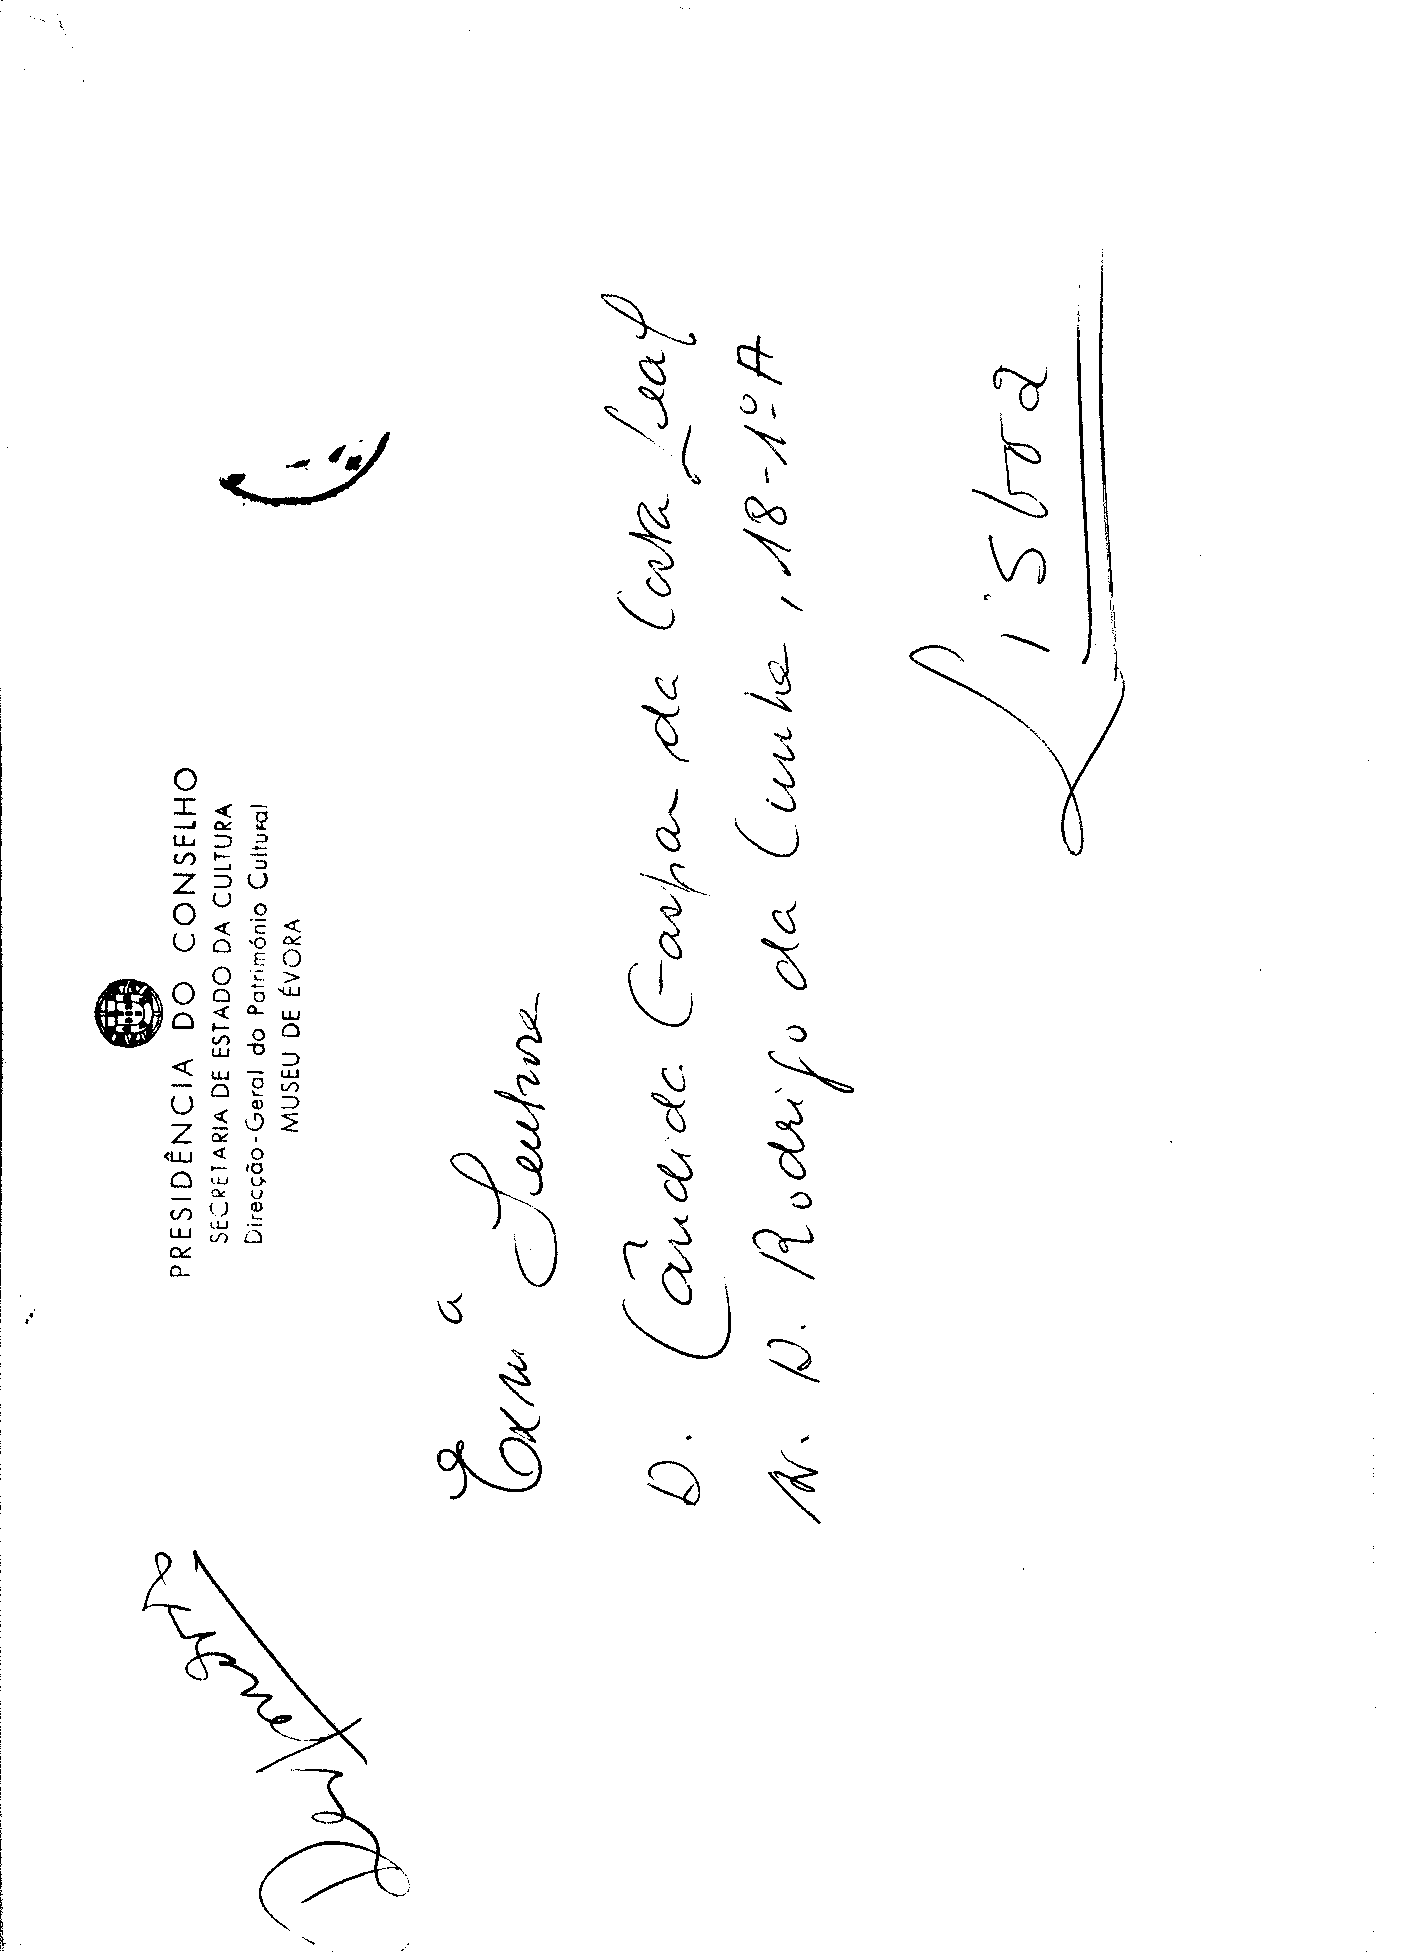 PRESIDÊNCIA DO CONSELHO
SECRETARIA DE ESTADO DA CULTURA
Direcção-Geral do Património Cultural
MUSEU DE ÉVORA
Exmª Senhora
D. Cândida Gaspar da Costa Leal
R. D. Rodrigo da Cunha, 18-1º-A
Lisboa